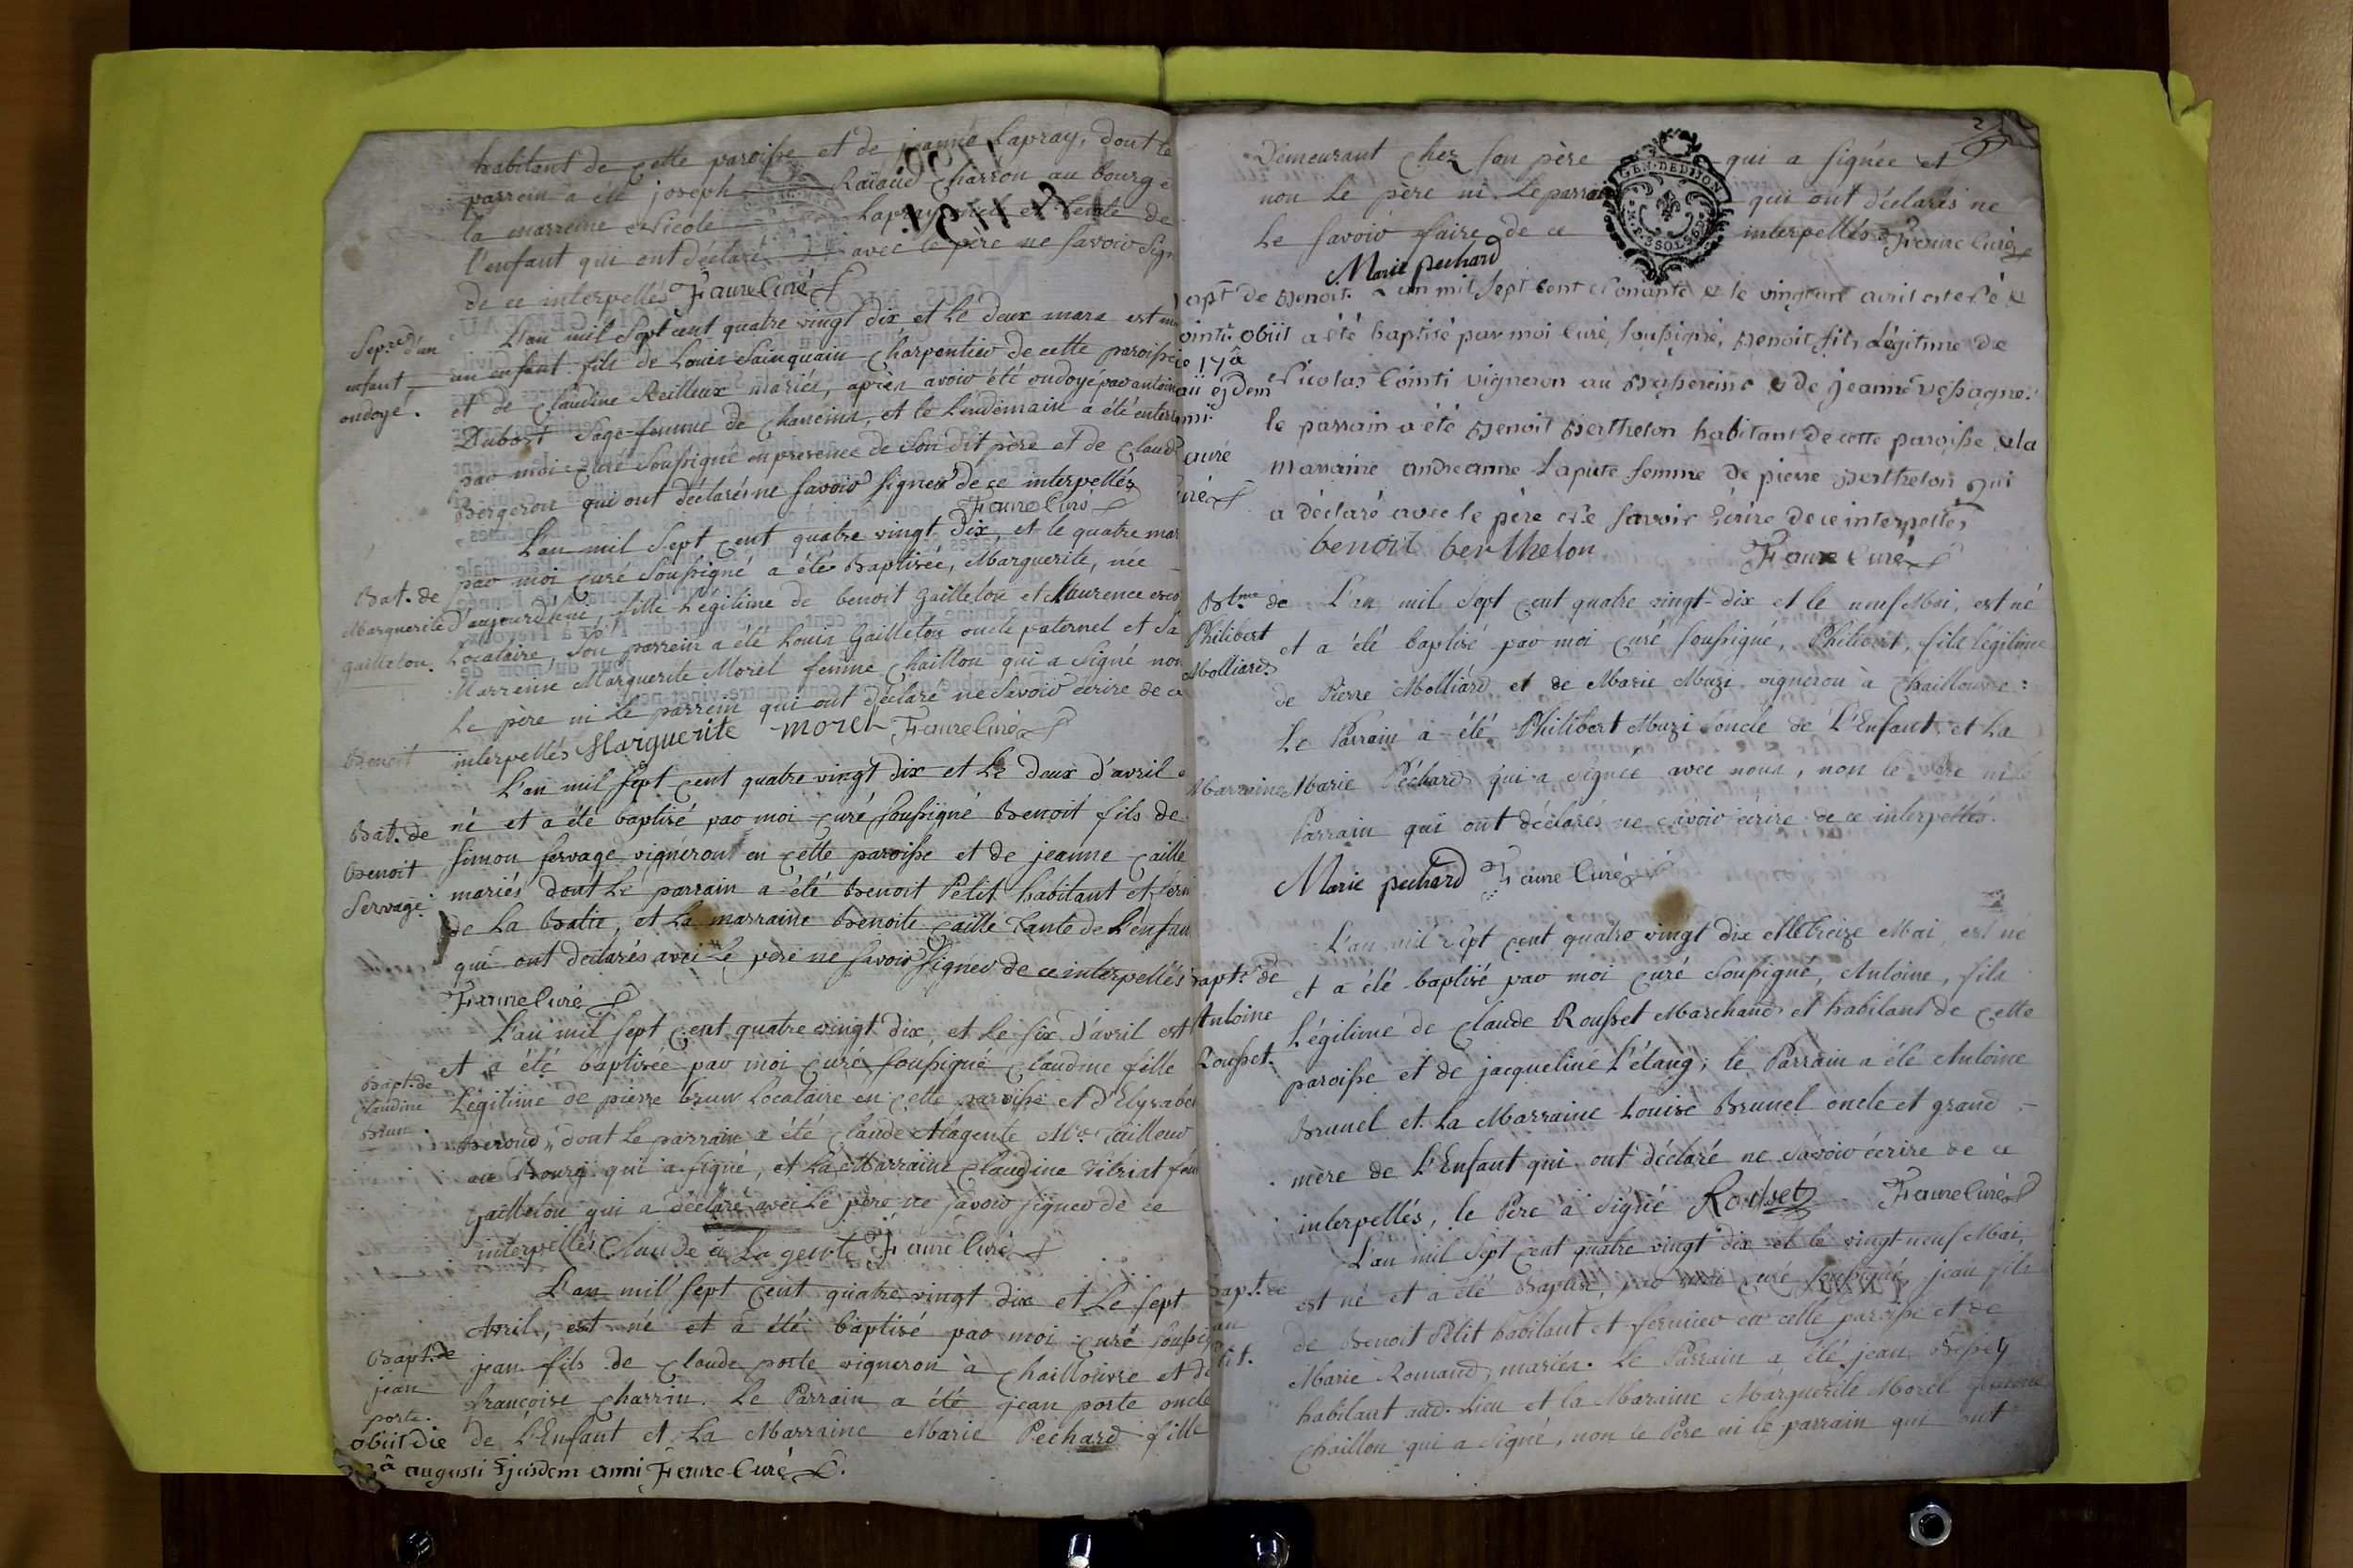 habitant de cette paroisse et de jeanne Lapray, dont le
parrein a été joseph Raïaud charron au bourg e
la marreine Nicole Lapray tante de
l'enfant qui ont déclaré avec le père ne savoir sign
de ce interpellés Faure Curé
Sep.re d'un
enfant
ondoyé.
L'an mil sept cent quatre vingt dix et le deux mars est
un enfant fils de Louis Sainquain charpentier de cette paroisse
et de Claudine Reilleux mariés, après avoir été ondoyé par antoin
Dubost Sage-femme de chaneins, et le Lendemain a été enterré
par moi curé Soussigné en présence de Son dit père et de Claud
Bergeron qui ont déclarés ne savoir signer de ce interpellés
Faure Curé
Bat. de
Marguerite
gailleton.
L'an mil sept cent quatre vingt Dix, et le quatre mar
par moi curé Soussigné a été Baptisée, Marguerite, née
D'aujourd'hui fille Légitime de benoit Gailleton et Laurence
Locataire, Son parrein a été Louis Gailleton oncle paternel et Sa
Marreine Marguerite Morel femme Chaillon qui a signé non
Le père ni le parrein qui ont déclaré ne Savoir écrire de ce
interpellés Marguerite morel Faure Curé
Benoit
Bat. de
Benoit
Servage
L'an mil sept cent quatre vingt dix et le deux d'avril
né et a été baptisé par moi curé soussigné Benoit fils de
simon servage vigneron en cette paroisse et de jeanne caille
mariés dont le parrain a été Benoit Petit habitant et fermi
de La Batie, et La marraine Benoite caille Tante de L'enfan
qui ont déclarés avec Le père ne savoir signer de ce interpellés
Faure Curé
Bapt. de
claudine
Brun.
L'an mil sept cent quatre vingt dix, et le six d'avril est
et a été baptisée par moi curé soussigné claudine fille
Légitime de pierre brun Locataire en cette paroisse et d'Elysabe
Beroud, dont Le parrain a été claude Alagente M.e Tailleur
au Bourg qui a signé, et La Marraine Claudine Vitriat fem
Gailleton qui a déclaré avec Le père ne savoir signer de ce
interpellés Claude a la gente Faure Curé
Bapt. de
jean
porte.
obiit die
L'an mil sept cent quatre vingt dix et Le sept
Avril, est né et a été baptisé par moi curé soussig
jean fils de claude porte vigneron à chaillouvre et de
françoise charrin. Le Parrain a été jean porte oncle
de L'Enfant et La Marraine Marie Pechard fille
â augusti Ejusdem anni Faure Curé
Demeurant chez son père qui a signée et
non le père ni le parrain qui ont déclarés ne
Le savoir faire de ce interpellés Faure Curé
Marie pechard
GEN. DE DIJON
apt de Benoit
ointi obiit
e 17â
aii ejdem
nni
aure
uré
L'an mil sept cent Nonante & le vingtune avril est né &
a été baptisé par moi Curé soussigné, Benoit fils Légitime de
Nicolas Cointi vigneron au & de jeanne
le parrain a été Benoit Berthelon habitant de cette paroisse & la
marraine andreanne Lapute femme de pierre Berthelon qui
a déclaré avec le père Ne savoir Ecrire de ce interpellés
benoit berthelon Faure Curé
Bt.me de
Philibert
Molliard
L'an mil sept cent quatre vingt-dix et le neuf Mai, est né
et a été baptisé par moi curé soussigné, Philibert, fils légitime
de Pierre Molliard et de Marie Muzi vigneron à Chaillouvre :
Le Parrain a été Philibert Muzi oncle de L'Enfant, et La
Marraine Marie Péchard qui a signée avec nous, non le Père ni le
Parrain qui ont déclarés ne savoir écrire de ce interpellés.
Marie pechard Faure Curé
Bapt. de
Antoine
Rousset.
L'an mil sept cent quatre vingt dix et le treize Mai, est né
et a été baptisé par moi curé soussigné, Antoine, fils
Légitime de claude Rousset Marchand et habitant de cette
paroisse et de jacqueline L'étang ; le Parrain a été Antoine
Brunel et La Marraine Louise Brunel oncle et grand
mère de L'Enfant qui ont déclaré ne savoir écrire de ce
interpellés, le Père a Signé Rousset Faure Curé
Bapt. de
L'an mil sept cent quatre vingt dix et le vingt neuf Mai,
est né et a été Baptisé, par moi curé soussigné, jean fils
de Benoit Petit habitant et fermier en cette paroisse et de
Marie Romand, mariés. Le Parrain a été jean Bessey
habitant aud. Lieu et la Maraine Marguerite Morel femme
chaillon qui a signé, non le Père ni le parrain qui ont